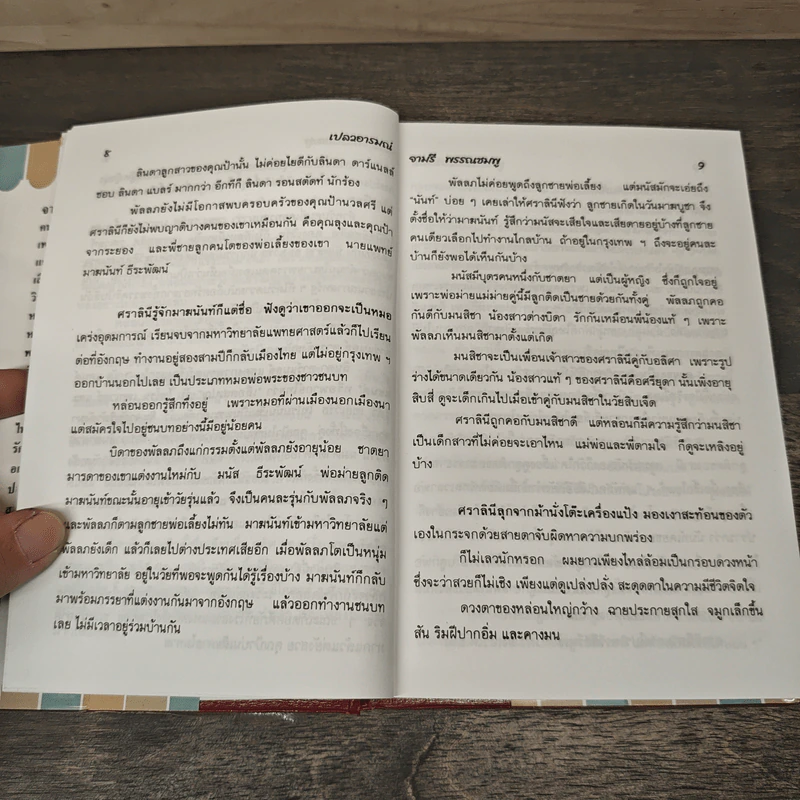 ๘
เปลวอารมณ์
ลินดาลูกสาวของคุณป้านั้น ไม่ค่อยไยดีกับลินดา ดาร์แนลล์
ชอบ ลินดา แบลร์ มากกว่า อีกทีก็ ลินดา รอนสตัดท์ นักร้อง
พัลลภยังไม่มีโอกาสพบครอบครัวของคุณป้านวลศรี แต่
ศราลินีก็ยังไม่พบญาติบางคนของเขาเหมือนกัน คือคุณลุงและคุณป้า
จากระยอง และพี่ชายลูกคนโตของพ่อเลี้ยงของเขา นายแพทย์
มาฆนันท์ ธีระพัฒน์
ศราลินีรู้จักมาฆนันท์ก็แต่ชื่อ ฟังดูว่าเขาออกจะเป็นหมอ
เคร่งอุดมการณ์ เรียนจบจากมหาวิทยาลัยแพทยศาสตร์แล้วก็ไปเรียน
ต่อที่อังกฤษ ทำงานอยู่สองสามปีก็กลับเมืองไทย แต่ไม่อยู่กรุงเทพ ฯ
ออกบ้านนอกไปเลย เป็นประเภทหมอพ่อพระของชาวชนบท
หล่อนออกรู้สึกทึ่งอยู่ เพราะหมอที่ผ่านเมืองนอกเมืองนา
แต่สมัครใจไปอยู่ชนบทอย่างนี้มีอยู่น้อยคน
บิดาของพัลลภถึงแก่กรรมตั้งแต่พัลลภยังอายุน้อย ชาตยา
มารดาของเขาแต่งงานใหม่กับ มนัส ธีระพัฒน์ พ่อม่ายลูกติด
มาฆนันท์ขณะนั้นอายุเข้าวัยรุ่นแล้ว จึงเป็นคนละรุ่นกับพัลลภจริง ๆ
และพัลลภก็ตามลูกชายพ่อเลี้ยงไม่ทัน มาฆนันท์เข้ามหาวิทยาลัยแต่
พัลลภยังเด็ก แล้วก็เลยไปต่างประเทศเสียอีก เมื่อพัลลภโตเป็นหนุ่ม
เข้ามหาวิทยาลัย อยู่ในวัยที่พอจะพูดกันได้รู้เรื่องบ้าง มาฆนันท์ก็กลับ
มาพร้อมภรรยาที่แต่งงานกันมาจากอังกฤษ แล้วออกทำงานชนบท
เลย ไม่มีเวลาอยู่ร่วมบ้านกัน
จามรี พรรณชมพู
๙
พัลลภไม่ค่อยพูดถึงลูกชายพ่อเลี้ยง แต่มนัสมักจะเอ่ยถึง
“นันท์” บ่อย ๆ เคยเล่าให้ศราลินีฟังว่า ลูกชายเกิดในวันมาฆบูชา จึง
ตั้งชื่อให้ว่ามาฆนันท์ รู้สึกว่ามนัสจะเสียใจและเสียดายอยู่บ้างที่ลูกชาย
คนเดียวเลือกไปทำงานไกลบ้าน ถ้าอยู่ในกรุงเทพ ฯ ถึงจะอยู่คนละ
บ้านก็ยังพอได้เห็นกันบ้าง
มนัสมีบุตรคนหนึ่งกับชาตยา แต่เป็นผู้หญิง ซึ่งก็ถูกใจอยู่
เพราะพ่อม่ายแม่ม่ายคู่นี้มีลูกติดเป็นชายด้วยกันทั้งคู่ พัลลภถูกคอ
กันดีกับมนสิชา น้องสาวต่างบิดา รักกันเหมือนพี่น้องแท้ ๆ เพราะ
พัลลภเห็นมนสิชามาตั้งแต่เกิด
มนสิชาจะเป็นเพื่อนเจ้าสาวของศราลินีคู่กับอลิศา เพราะรูป
ร่างได้ขนาดเดียวกัน น้องสาวแท้ ๆ ของศราลินีคือศรียุดา นั้นเพิ่งอายุ
สิบสี่ ดูจะเด็กเกินไปเมื่อเข้าคู่กับมนสิชาในวัยสิบเจ็ด
ศราลินีถูกคอกับมนสิชาดี แต่หล่อนก็มีความรู้สึกว่ามนสิชา
เป็นเด็กสาวที่ไม่ค่อยจะเอาไหน แม่พ่อและพี่ตามใจ ก็ดูจะเหลิงอยู่
บ้าง
ศราลินีลุกจากม้านั่งโต๊ะเครื่องแป้ง มองเงาสะท้อนของตัว
เองในกระจกด้วยสายตาจับผิดหาความบกพร่อง
ก็ไม่เลวนักหรอก ผมยาวเพียงไหล่ล้อมเป็นกรอบดวงหน้า
ซึ่งจะว่าสวยก็ไม่เชิง เพียงแต่ดูเปล่งปลั่ง สะดุดตาในความมีชีวิตจิตใจ
ดวงตาของหล่อนใหญ่กว้าง ฉายประกายสุกใส จมูกเล็กขึ้น
สัน ริมฝีปากอิ่ม และคางมน